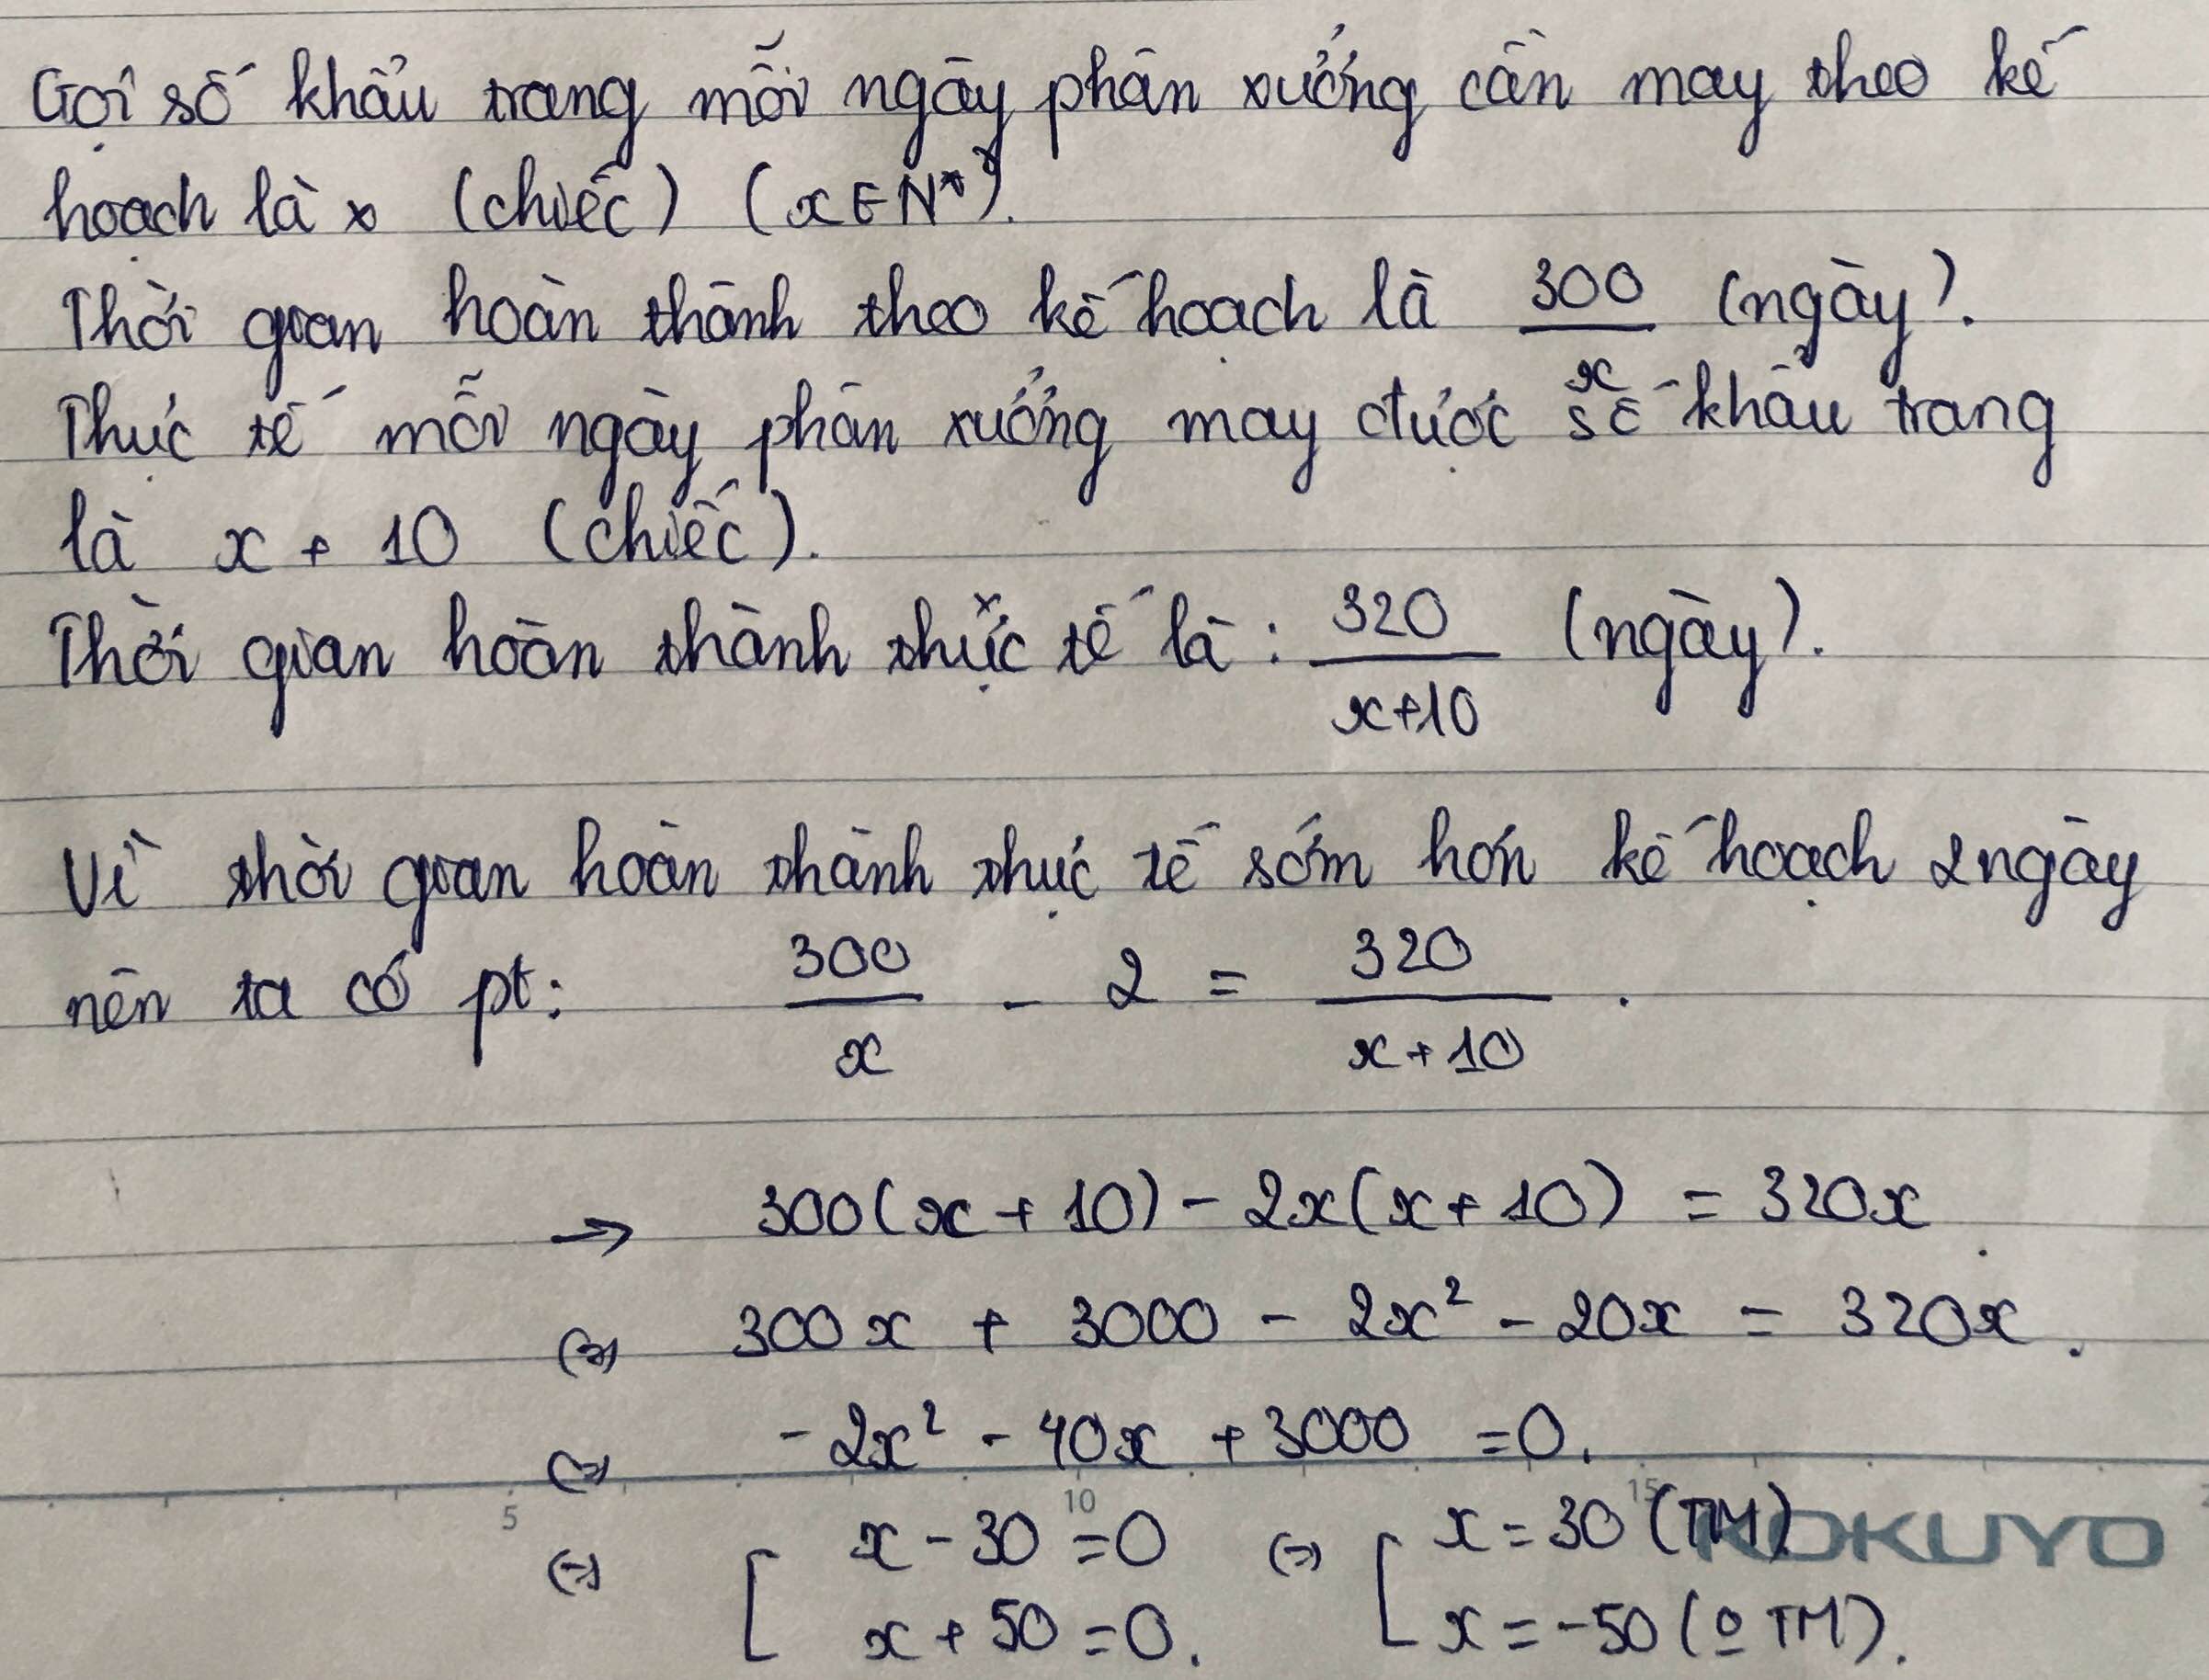 Gọi số khẩu trang mỗi ngày phân xưởng cần may theo kế
hoạch là x (chiếc) (x ∈ N*).
Thời gian hoàn thành theo kế hoạch là 300/x (ngày).
Thực tế mỗi ngày phân xưởng may được số khẩu trang
là x + 10 (chiếc).
Thời gian hoàn thành thực tế là: 320/(x+10) (ngày).
Vì thời gian hoàn thành thực tế sớm hơn kế hoạch 2 ngày
nên ta có pt: 300/x - 2 = 320/(x+10).
→ 300(x + 10) - 2x(x + 10) = 320x.
(=) 300x + 3000 - 2x² - 20x = 320x.
(=) -2x² - 40x + 3000 = 0.
5 10 15
KOKUYO
(=) [ x - 30 = 0 (=) [ x = 30 (TM)
x + 50 = 0. x = -50 (o TM).